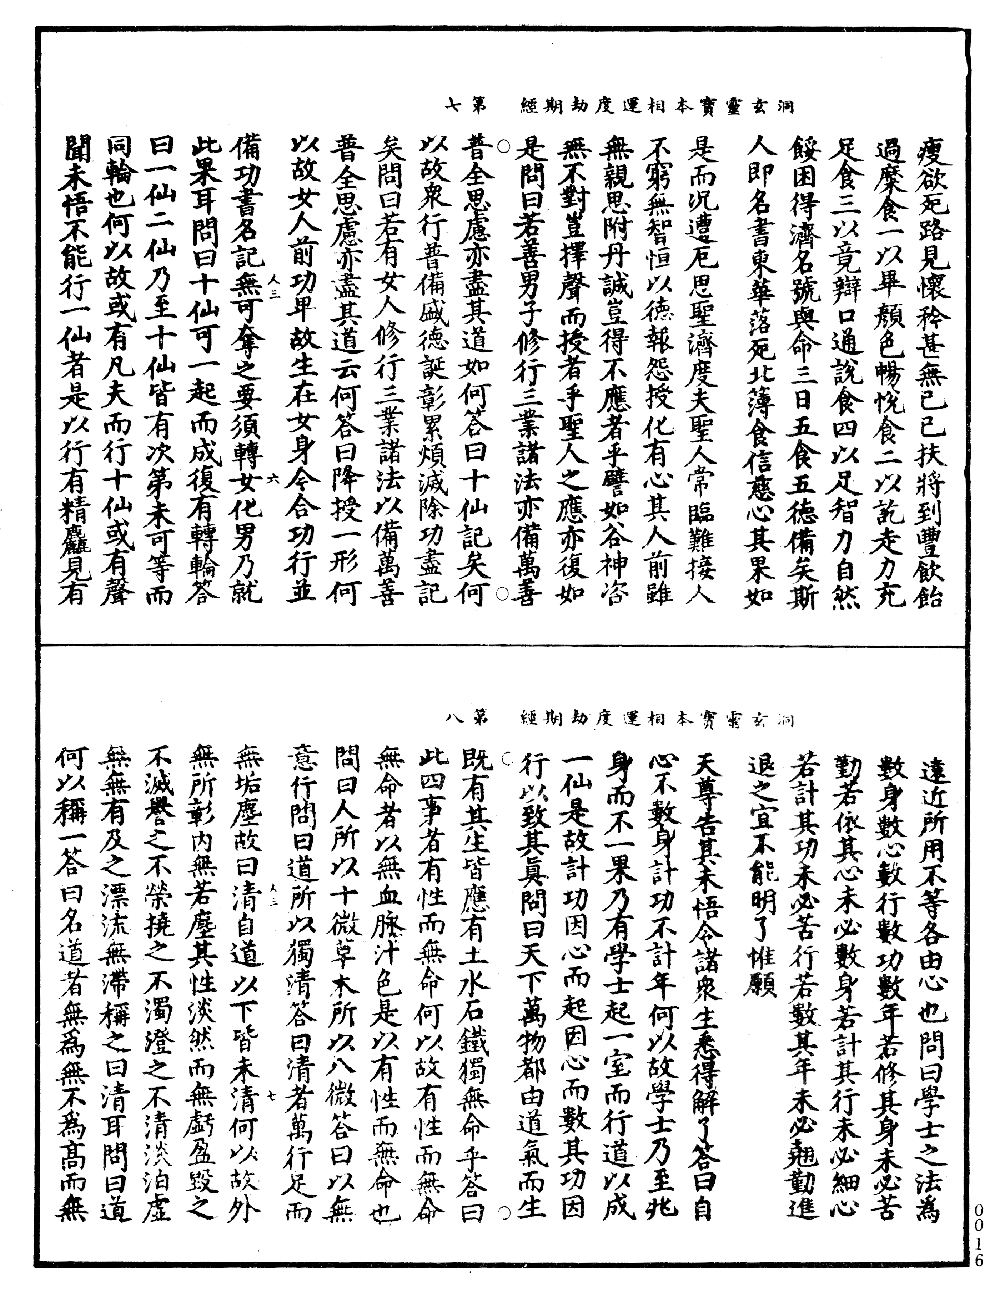 洞玄靈寶本相運度劫期經　第七
瘦欲死路見懷矜甚無已已扶將到豐飲飴
過糜食一以畢顏色暢悅食二以訖走力充
足食三以竟辯口通說食四以足智力自然
餒困得濟名號與命三日五食五德備矣斯
人即名書東華落死北薄食信應心其果如
是而況遭厄思聖濟度夫聖人常臨難接人
不窮無智恒以德報怨授化有心其人前雖
無親思附丹誠豈得不應者乎譬如谷神咨
無不對豈擇聲而授者乎聖人之應亦復如
是問曰若善男子修行三業諸法亦備萬善
普全思慮亦盡其道如何答曰十仙記矣何
以故眾行普備盛德誕彰累煩滅除功盡記
矣問曰若有女人修行三業諸法以備萬善
普全思慮亦盡其道云何答曰降授一形何
以故女人前功卑故生在女身令合功行並
人三　六
備功書名記無可奪之要須轉女化男乃就
此果耳問曰十仙可一起而成復有轉輪答
曰一仙二仙乃至十仙皆有次第未可等而
同輪也何以故或有凡夫而行十仙或有聲
聞未悟不能行一仙者是以行有精麤見有
洞玄靈寶本相運度劫期經　第八
遠近所用不等各由心也問曰學士之法為
數身數心數行數功數年若修其身未必苦
勤若依其心未必數身若計其行未必細心
若計其功未必苦行若數其年未必翹勤進
退之宜不能明了惟願
天尊告其未悟令諸眾生悉得解了答曰自
心不數身計功不計年何以故學士乃至兆
身而不一果乃有學士起一室而行道以成
一仙是故計功因心而起因心而數其功因
行以致其真問曰天下萬物都由道氣而生
既有其生皆應有土水石鐵獨無命乎答曰
此四事者有性而無命何以故有性而無命
無命者以無血脉汁色是以有性而無命也
問曰人所以十微草木所以八微答曰以無
意行問曰道所以獨清答曰清者萬行足而
人三　七
無垢塵故曰清自道以下皆未清何以故外
無所彰內無若塵其性淡然而無虧盈毀之
不滅譽之不榮撓之不濁澄之不清淡泊虛
無無有及之漂流無滯稱之曰清耳問曰道
何以稱一答曰名道者無為無不為高而無
0016